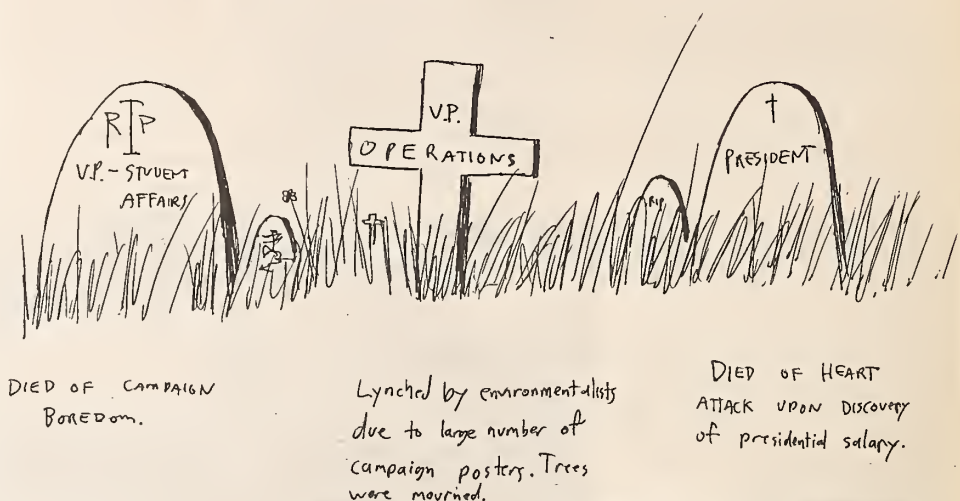 RIP
V.P. - STUDENT
AFFAIRS
V.P.
OPERATIONS
RIP
PRESIDENT
DIED OF CAMPAIGN
BOREDOM.
Lynched by environmentalists
due to large number of
campaign posters. Trees
were mourned.
DIED OF HEART
ATTACK UPON DISCOVERY
of presidential salary.